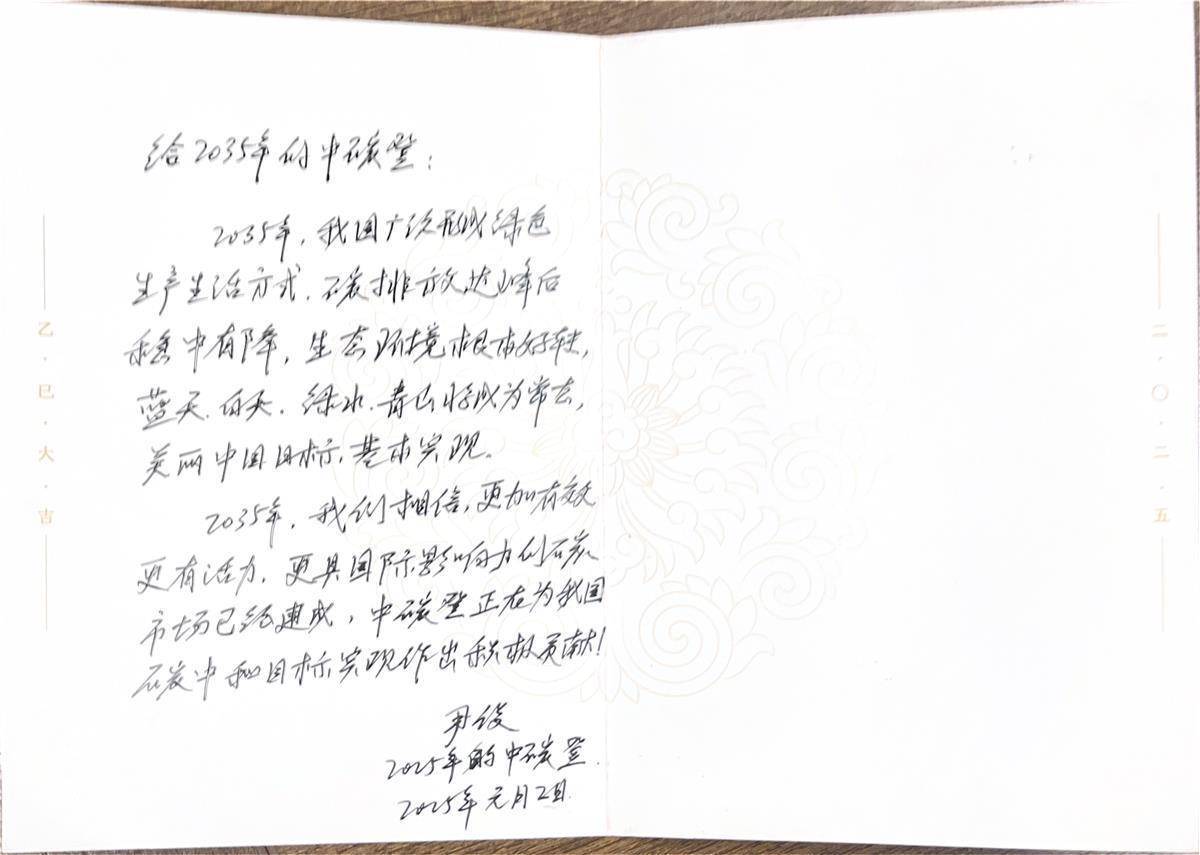 给2035年的中碳登：
2035年，我国广泛形成绿色
生产生活方式，碳排放达峰后
稳中有降，生态环境根本好转，
蓝天、白天、绿水、青山将成为常态，
美丽中国目标，基本实现。
2035年，我们相信，更加有效
更有活力，更具国际影响力的碳
市场已经建成，中碳登正在为我国
碳中和目标实现作出积极贡献！
2025年的中碳登
2025年元月2日
乙·巳·大·吉
二·〇·二·五